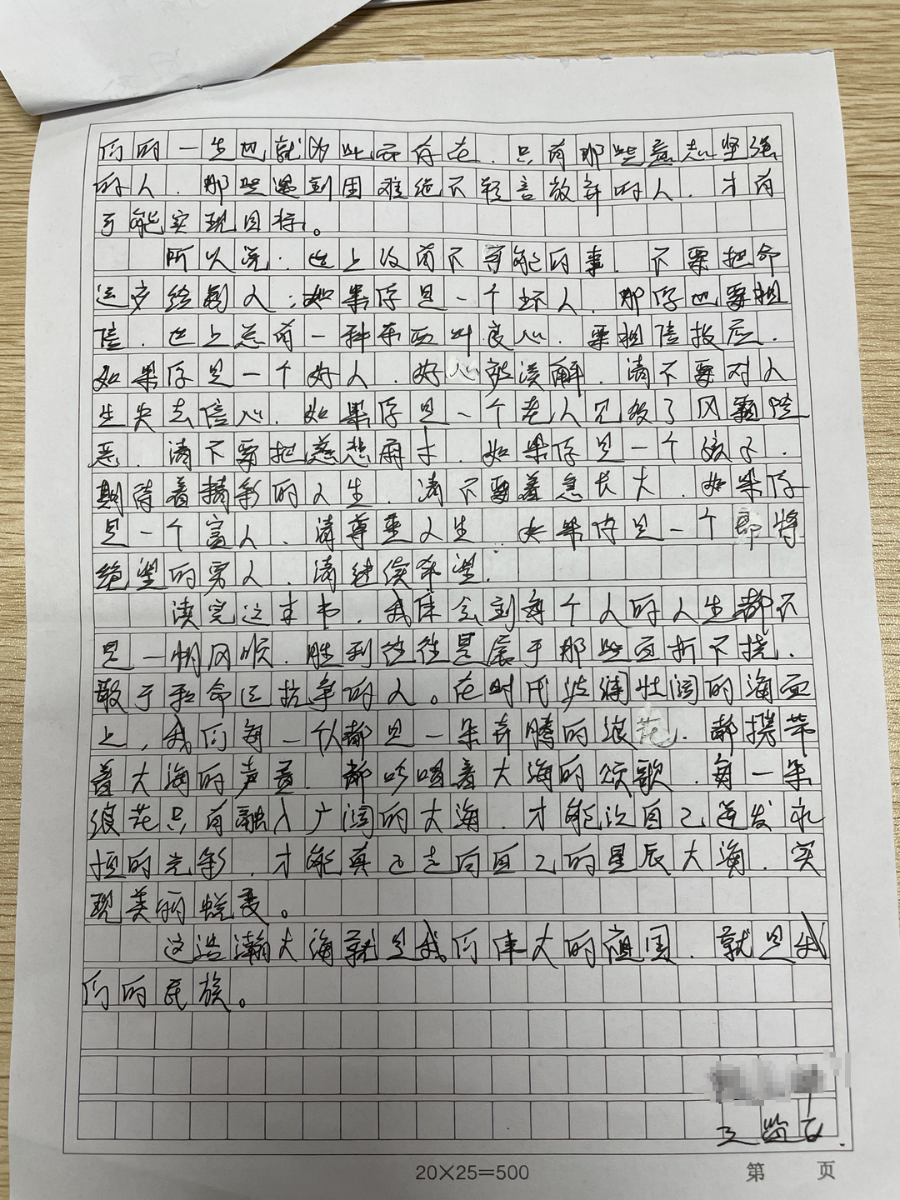 们的一生也就为此而存在.只有那些意志坚强
的人.那些遇到困难绝不轻言放弃的人.才有
可能实现目标。
所以说:世上没有不可能的事.不要把命
运交给别人:如果你是一个坏人.那你也要相
信.世上总有一种东西叫良心.要相信报应.
如果你是一个好人.好心被误解.请不要对人
生失去信心.如果你是一个老人见教了风霜险
恶.请不要把慈悲丢掉.如果你是一个孩子.
期待着精彩的人生.请不要着急长大.如果你
是一个富人.请尊重人生.如果你是一个即将
绝望的男人.请继续希望.
读完这本书.我体会到每个人的人生都不
是一帆风顺.胜利往往是属于那些百折不挠.
敢于和命运抗争的人。在时代波涛壮阔的海面
上,我们每一个人都是一朵奔腾的浪花.都携带
着大海的声音.都吟唱着大海的颂歌.每一朵
浪花只有融入广阔的大海.才能让自己迸发永
恒的光彩.才能真正走向自己的星辰大海.实
现美丽蜕变。
这浩瀚大海就是我们伟大的祖国.就是我
们的民族。
五监区.
20×25=500
第 页